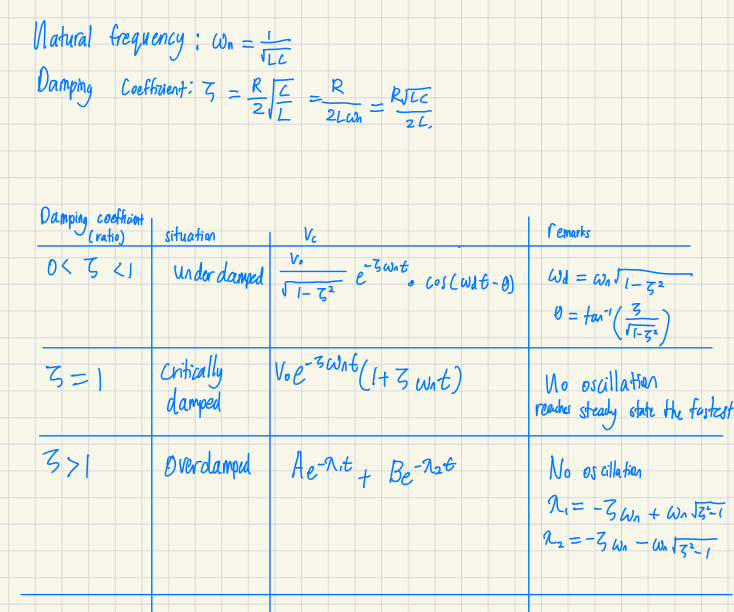 Natural frequency : ωn = 1/√LC
Damping Coefficient: ζ = R/2 √(C/L) = R/2Lωn = R√LC/2L.
Damping coefficient (ratio) | situation | Vc | remarks
0 < ζ < 1 | underdamped | V₀/√(1-ζ²) e^(-ζωnt) · cos(ωdt-θ) | ωd = ωn√(1-ζ²)
θ = tan⁻¹(ζ/√(1-ζ²))
ζ = 1 | Critically damped | V₀e^(-ζωnt)(1+ζωnt) | No oscillation
reaches steady state the fastest
ζ > 1 | Overdamped | Ae^(-λ₁t) + Be^(-λ₂t) | No oscillation
λ₁ = -ζωn + ωn√(ζ²-1)
λ₂ = -ζωn - ωn√(ζ²-1)